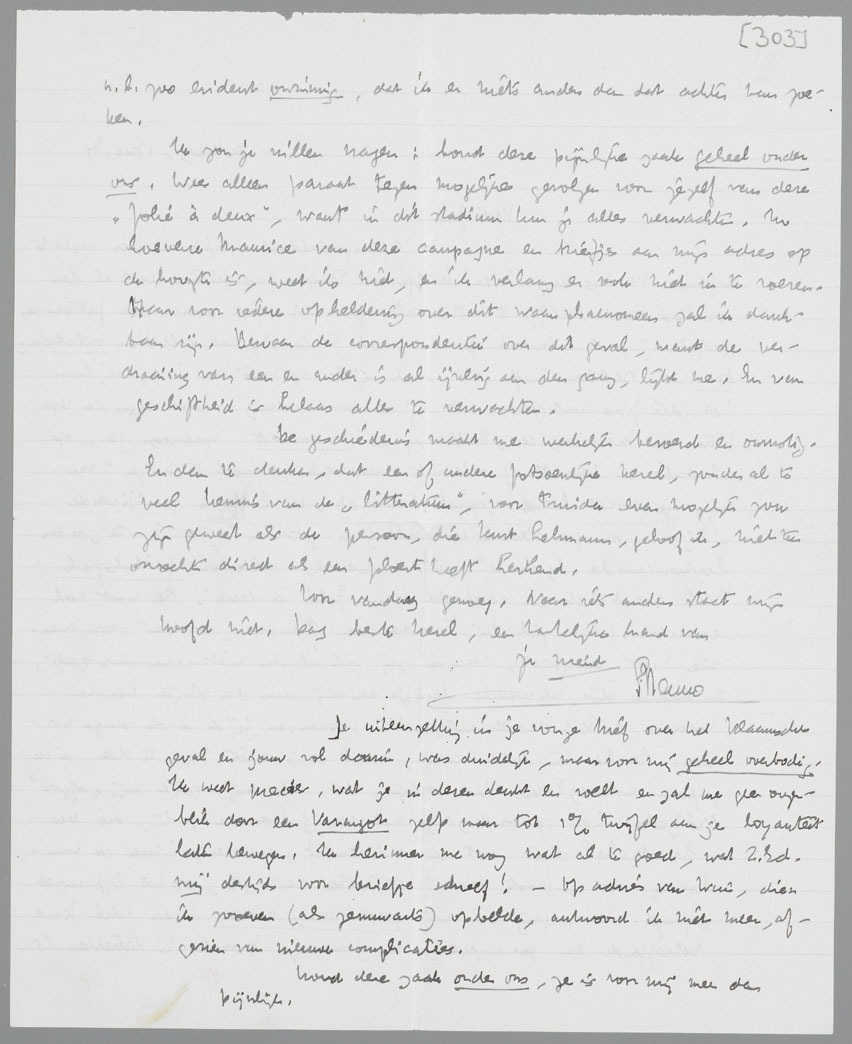 [303]
n.b. zoo evident onzinnig, dat ik er niets anders dan dat achter kan zoe-
ken.
Ik zou je willen vragen: houd deze pijnlijke zaak geheel onder
ons. Wees alleen paraat tegen mogelijke gevolgen voor jezelf van deze
"folie à deux", want in dit stadium kun je alles verwachten. In
hoeverre Maurice van deze campagne en briefjes aan mijn adres op
de hoogte is, weet ik niet, en ik verlang er ook niet in te roeren.
Maar voor iedere opheldering over dit waanphaenomeen zal ik dank-
baar zijn. Bewaar de correspondentie over dit geval, want de ver-
draaiing van een en ander is al ijverig aan den gang, lijkt me. En van
geschiftheid is helaas alles te verwachten.
De geschiedenis maakt me werkelijk beroerd en onrustig.
En dan te denken, dat een of andere fatsoenlijke kerel, zonder al te
veel kennis van de "litteratuur", voor Truida even mogelijk zou
zijn geweest als de persoon, die Kurt Lehmann, geloof ik, niet ten
onrechte direct als een ploert heeft herkend.
Voor vandaag genoeg. Naar iets anders staat mijn
hoofd niet. Dag beste kerel, een hartelijke hand van
je vriend
Menno
Je uiteenzetting in je vorige brief over het Vlaamsche
geval en jouw rol daarin, was duidelijk, maar voor mij geheel overbodig.
Ik weet precies, wat je in dezen denkt en voelt en zal me geen oogen-
blik door een Varangot zelfs maar tot 1% twijfel aan je loyauteit
laten bewegen. Ik herinner me nog wat al te goed, wat
mij destijds voor briefje schreef! — Op advies van , dien
ik gisteren (als ) opbelde, antwoord ik niet meer, af-
gezien van nieuwe complicaties.
Houd deze zaak onder ons, ze is voor mij meer dan
pijnlijk.